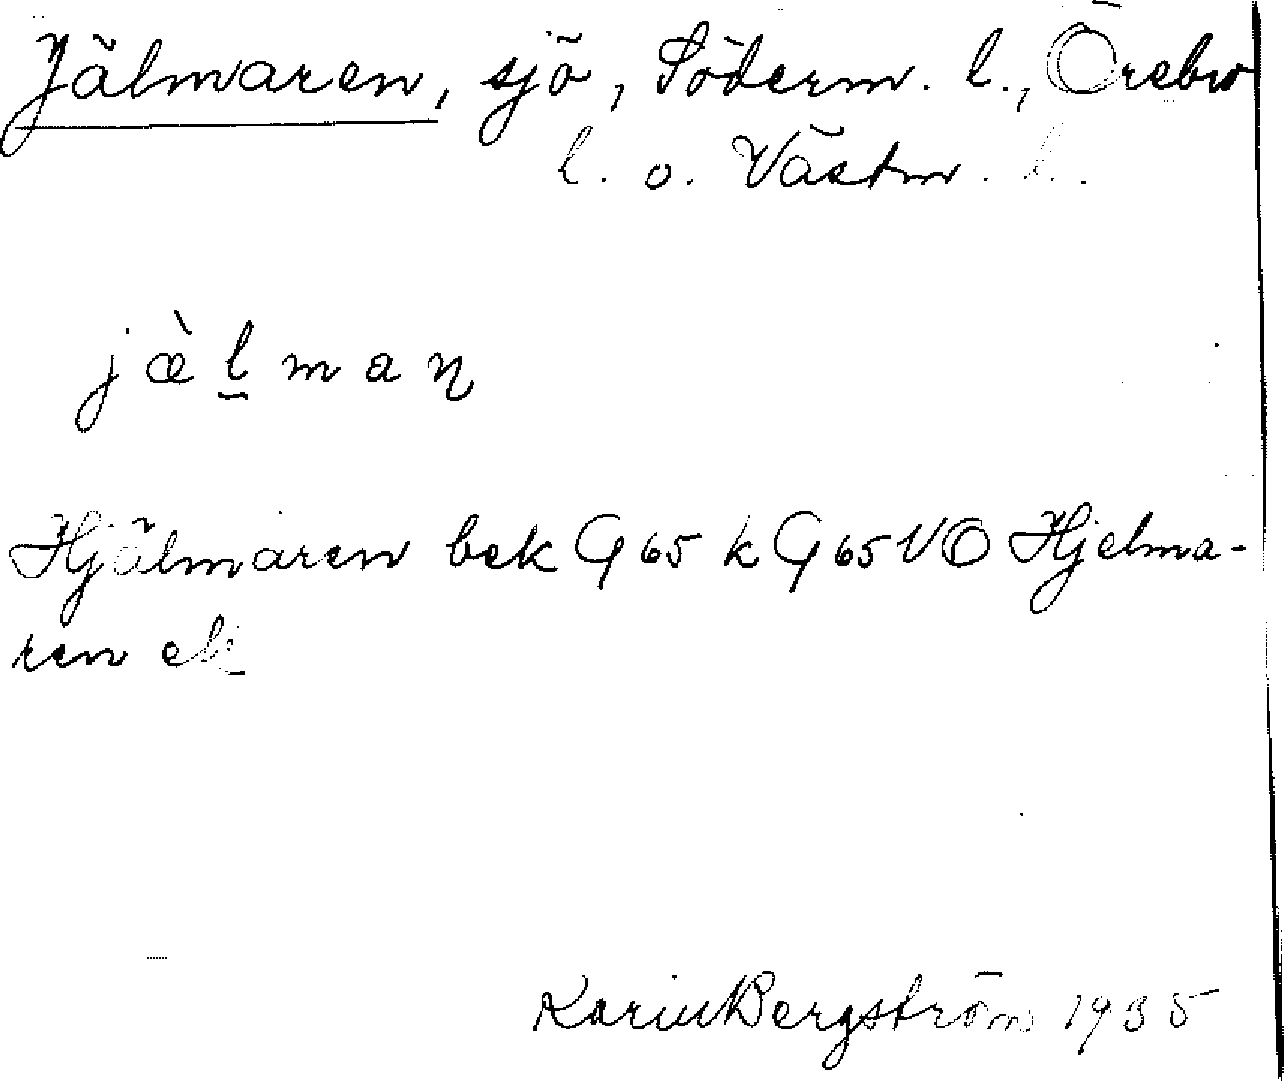 Jälmaren, sjö, Söderm. l., Örebro
l. o. Västm. l.
jæ̀l̮maɳ
Hjälmaren bek G 65 k G 65 NO Hjelma-
ren ek
Karin Bergström 1935